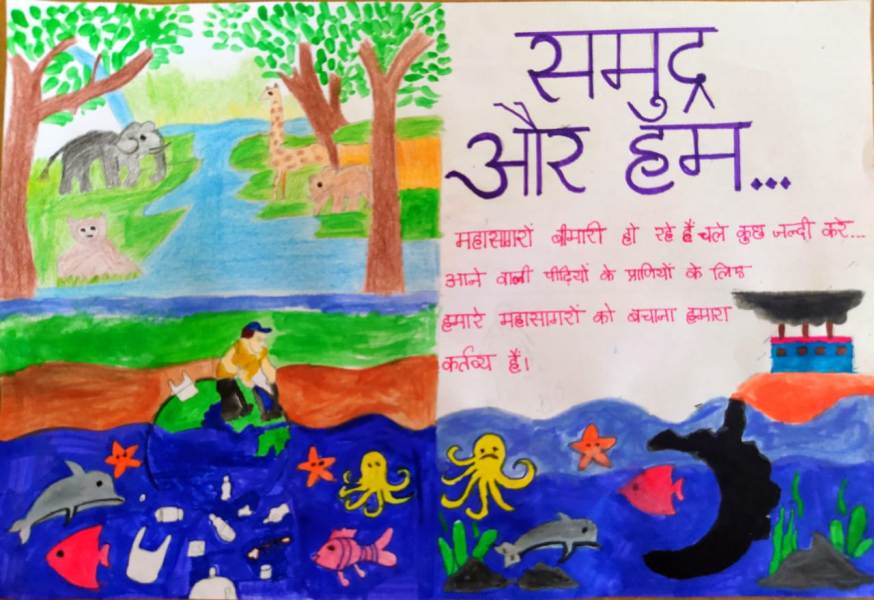 समुद्र
और हम...
महासागरों बीमारी हो रहे हैं चले कुछ जल्दी करे...
आने वाली पीढ़ियों के प्राणियों के लिए
हमारे महासागरों को बचाना हमारा
कर्तव्य हैं।